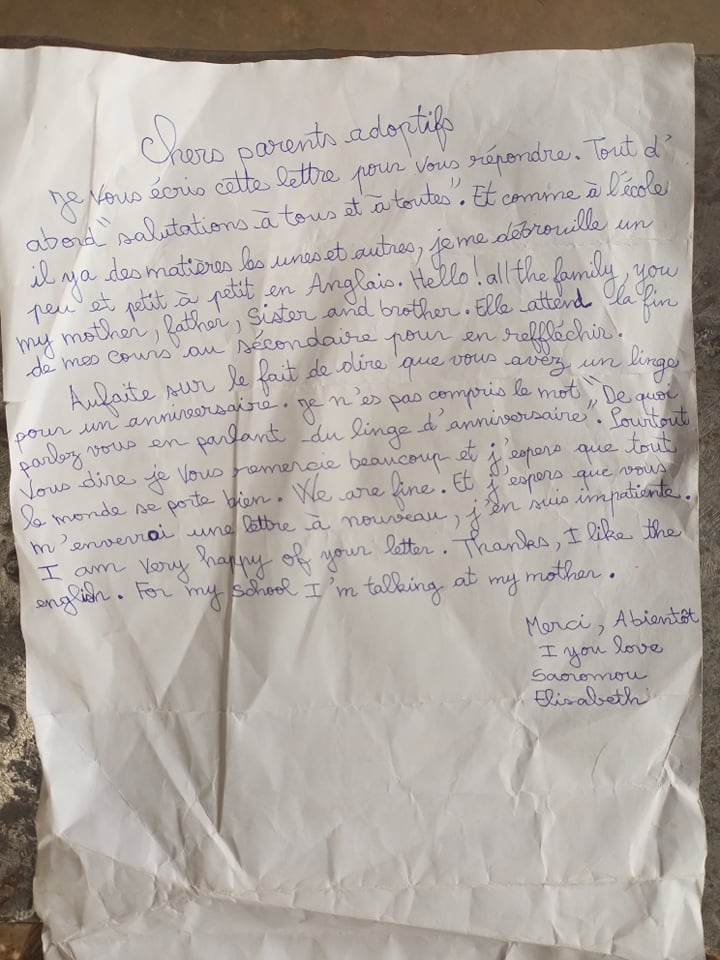 Chers parents adoptifs
Je vous écris cette lettre pour vous répondre. Tout d'
abord "salutations à tous et à toutes". Et comme à l'école
il ya des matières les unes et autres, je me débrouille un
peu et petit à petit en Anglais. Hello! all the family, you
my mother, father, sister and brother. Elle attend la fin
de mes cours au sécondaire pour en reffléchir.
Aufaite sur le fait de dire que vous avez un linge
pour un anniversaire. Je n'es pas compris le mot "De quoi
parlez vous en parlant du linge d'anniversaire". Pourtout
vous dire je vous remercie beaucoup et j'espers que tout
le monde se porte bien. We are fine. Et j'espers que vous
m'enverrai une lettre à nouveau, j'en suis impatiente.
I am very happy of your letter. Thanks, I like the
english. For my school I'm talking at my mother.
Merci, Abientôt
I you love
Saoromou
Elisabeth